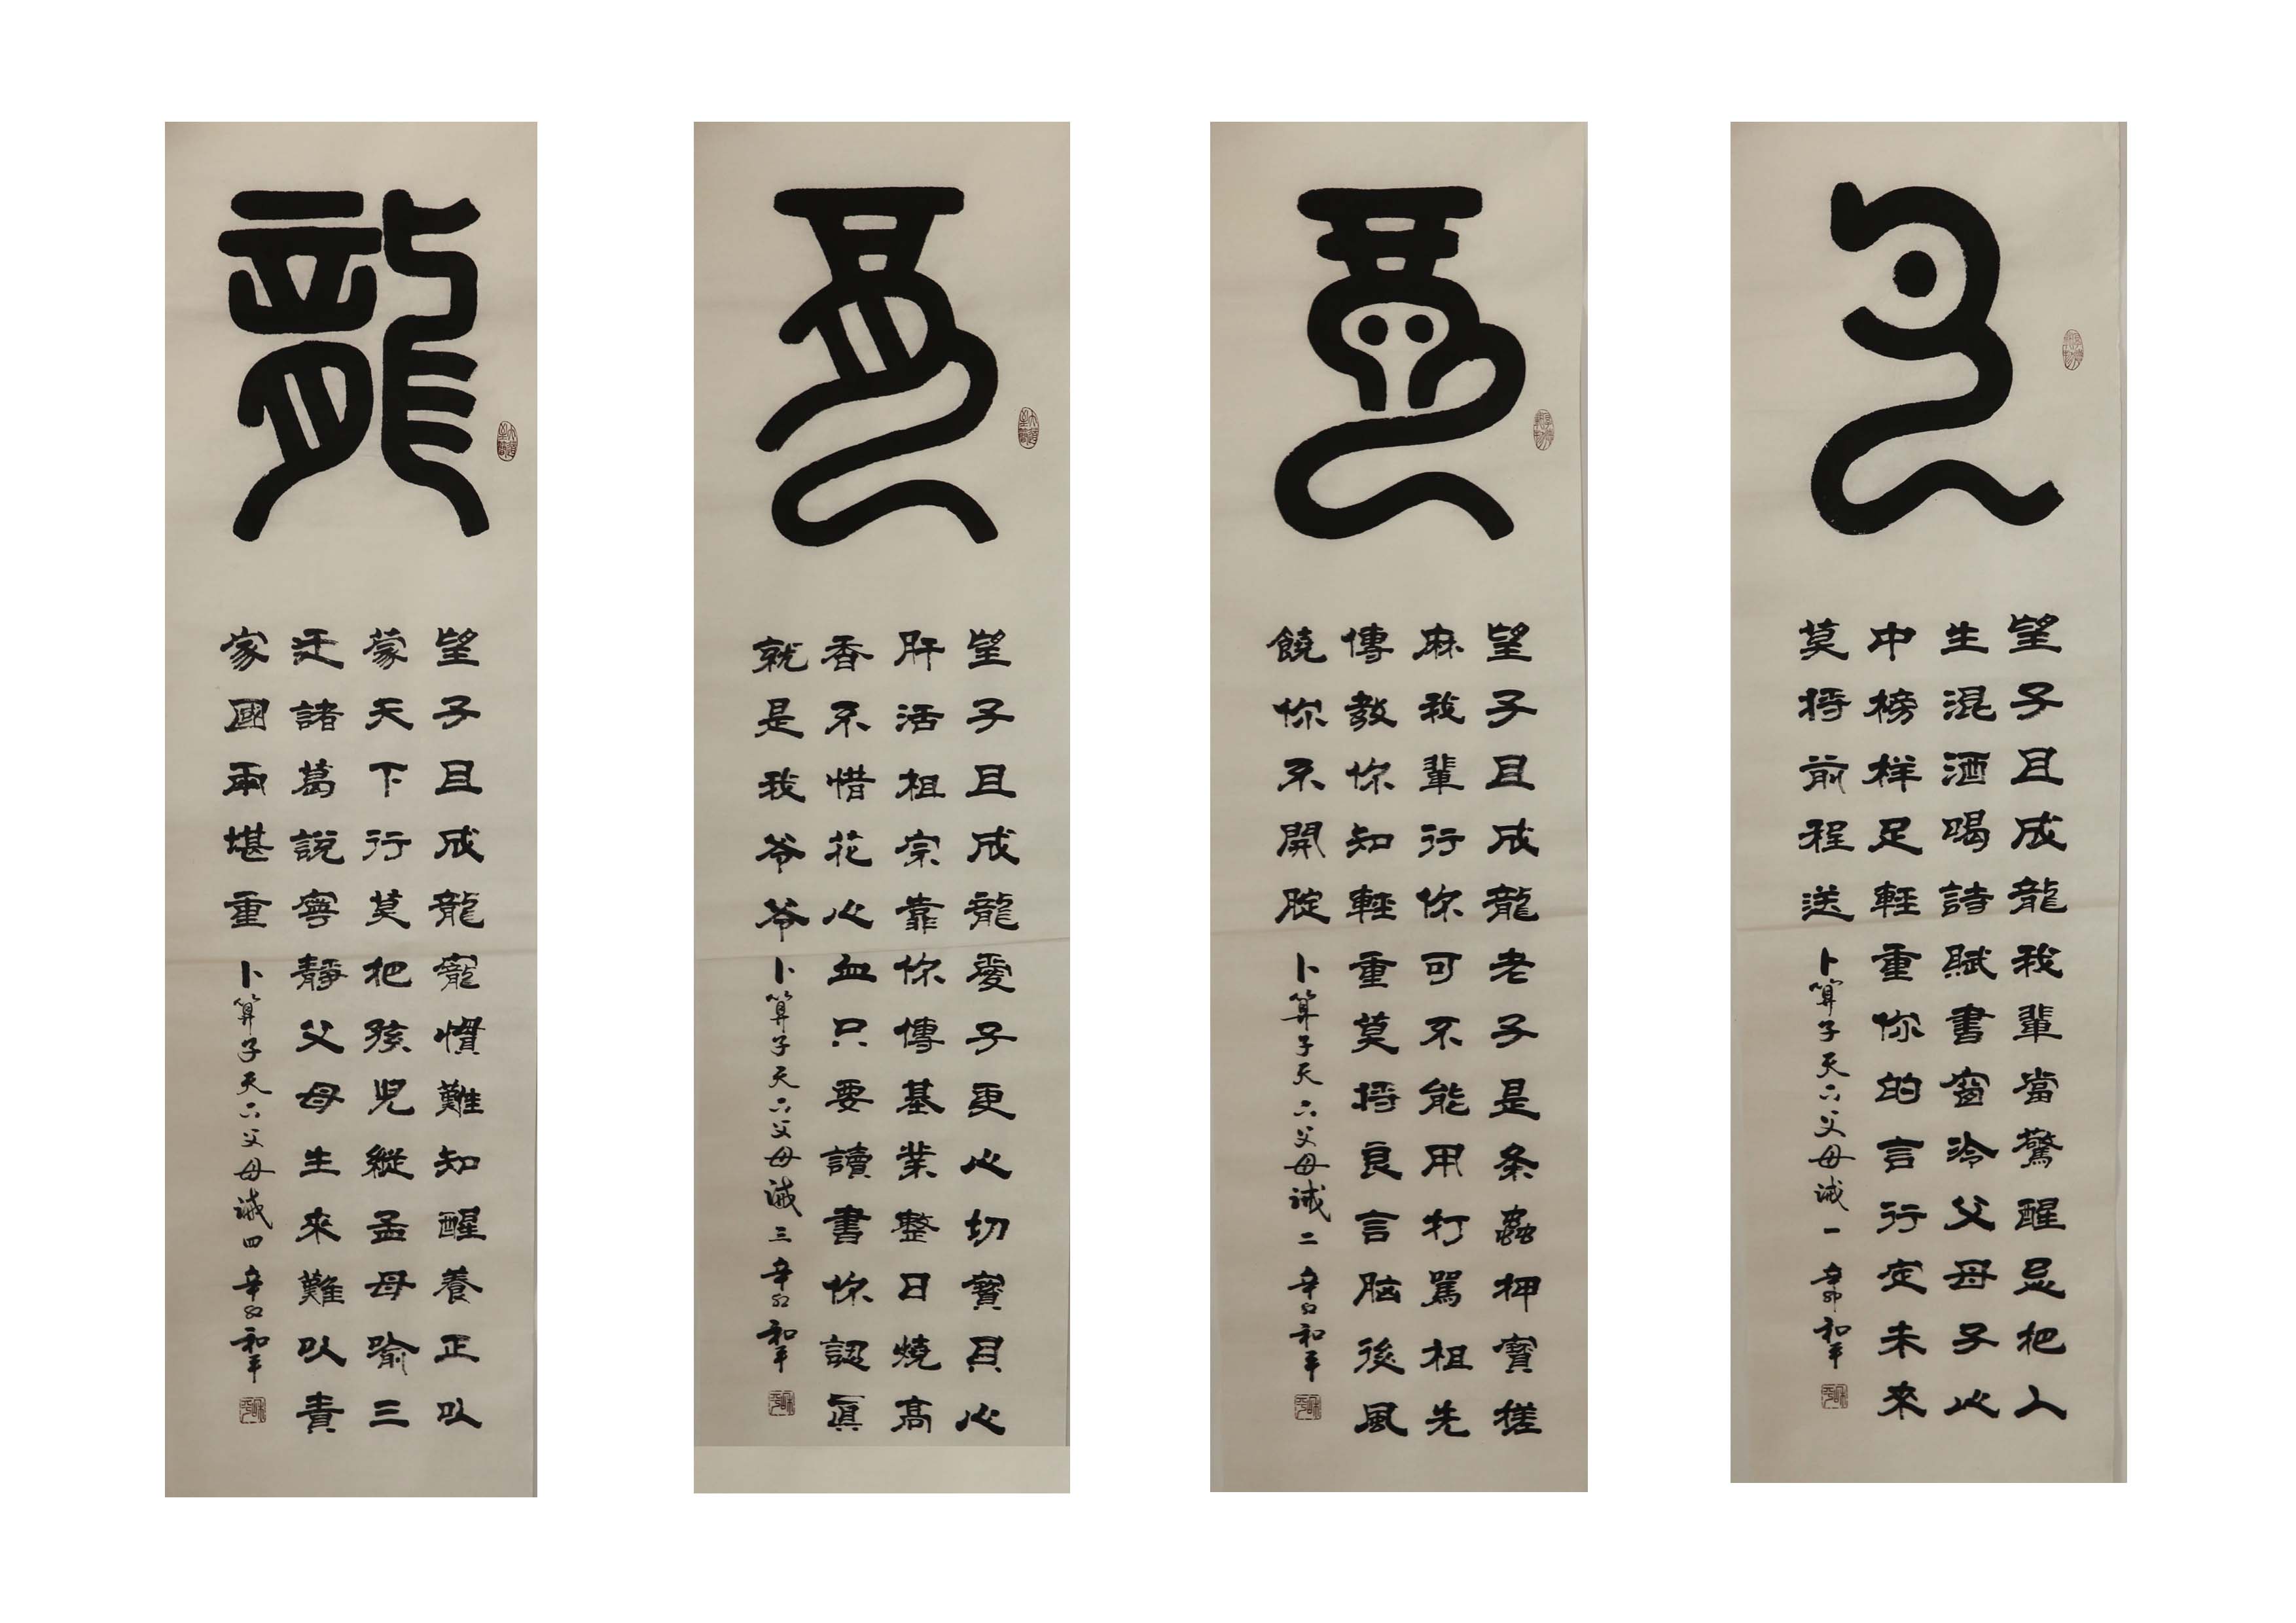 望子且成龍我輩當驚醒忌把人
生混酒喝詩賦書窗冷父母子心
中榜样足輊重你的言行定未來
莫将前程送
卜算子天六父母诫一 辛卯和平
望子且成龍老子是条蟲押寶搓
麻我輩行你可不能用打駡祖先
傳教你知輊重莫将良言脑後風
饒你不開腚
卜算子天六父母诫二 辛卯和平
望子且成龍愛子更心切寶貝心
肝活祖宗靠你傳基業整日燒高
香不惜花心血只要讀書你認真
就是我爷爷
卜算子天六父母诫三 辛卯和平
龍
望子且成龍寵慣難知醒養正以
蒙天下行莫把孩児縱孟母喻三
迁諸葛說寧静父母生來難以責
家國兩堪重
卜算子天六父母诫四 辛卯和平